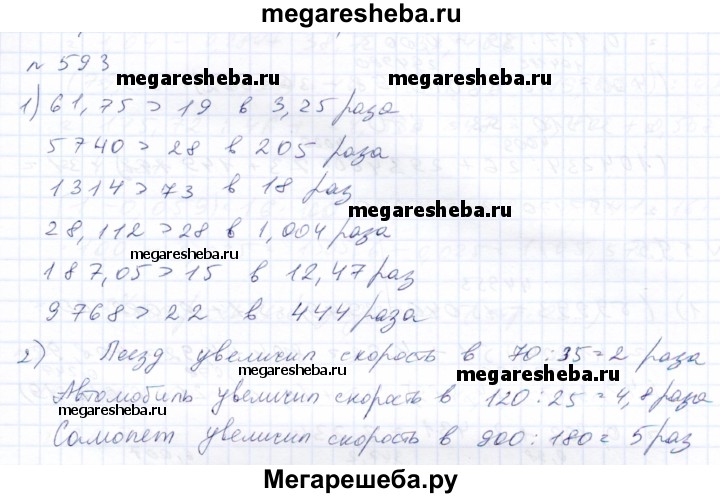 megaresheba.ru
№ 593
megaresheba.ru megaresheba.ru
1) 61,75 > 19 в 3,25 раза
5740 > 28 в 205 раза
1314 > 73 в 18 раз
megaresheba.ru
28,112 > 28 в 1,004 раза
megaresheba.ru
187,05 > 15 в 12,47 раз
9768 > 22 в 444 раза
2) Поезд увеличил скорость в 70 : 35 = 2 раза
megaresheba.ru megaresheba.ru
Автомобиль увеличил скорость в 120 : 25 = 4,8 раза
megaresheba.ru
Самолет увеличил скорость в 900 : 180 = 5 раз
Мегарешеба.ру